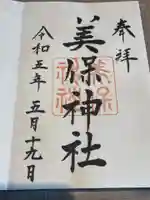 奉拝
美保神社
令和五年 五月十九日